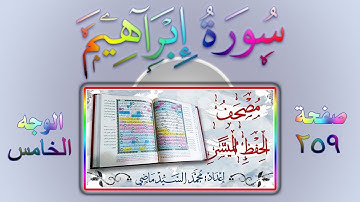 سُورَةُ إِبْرَاهِيمَ
صفحة
٢٥٩
الوجه
الخامس
مُصْحَفُ
الحِفْظِ المُيَسَّرِ
إعداد: محمد السيد ماضي